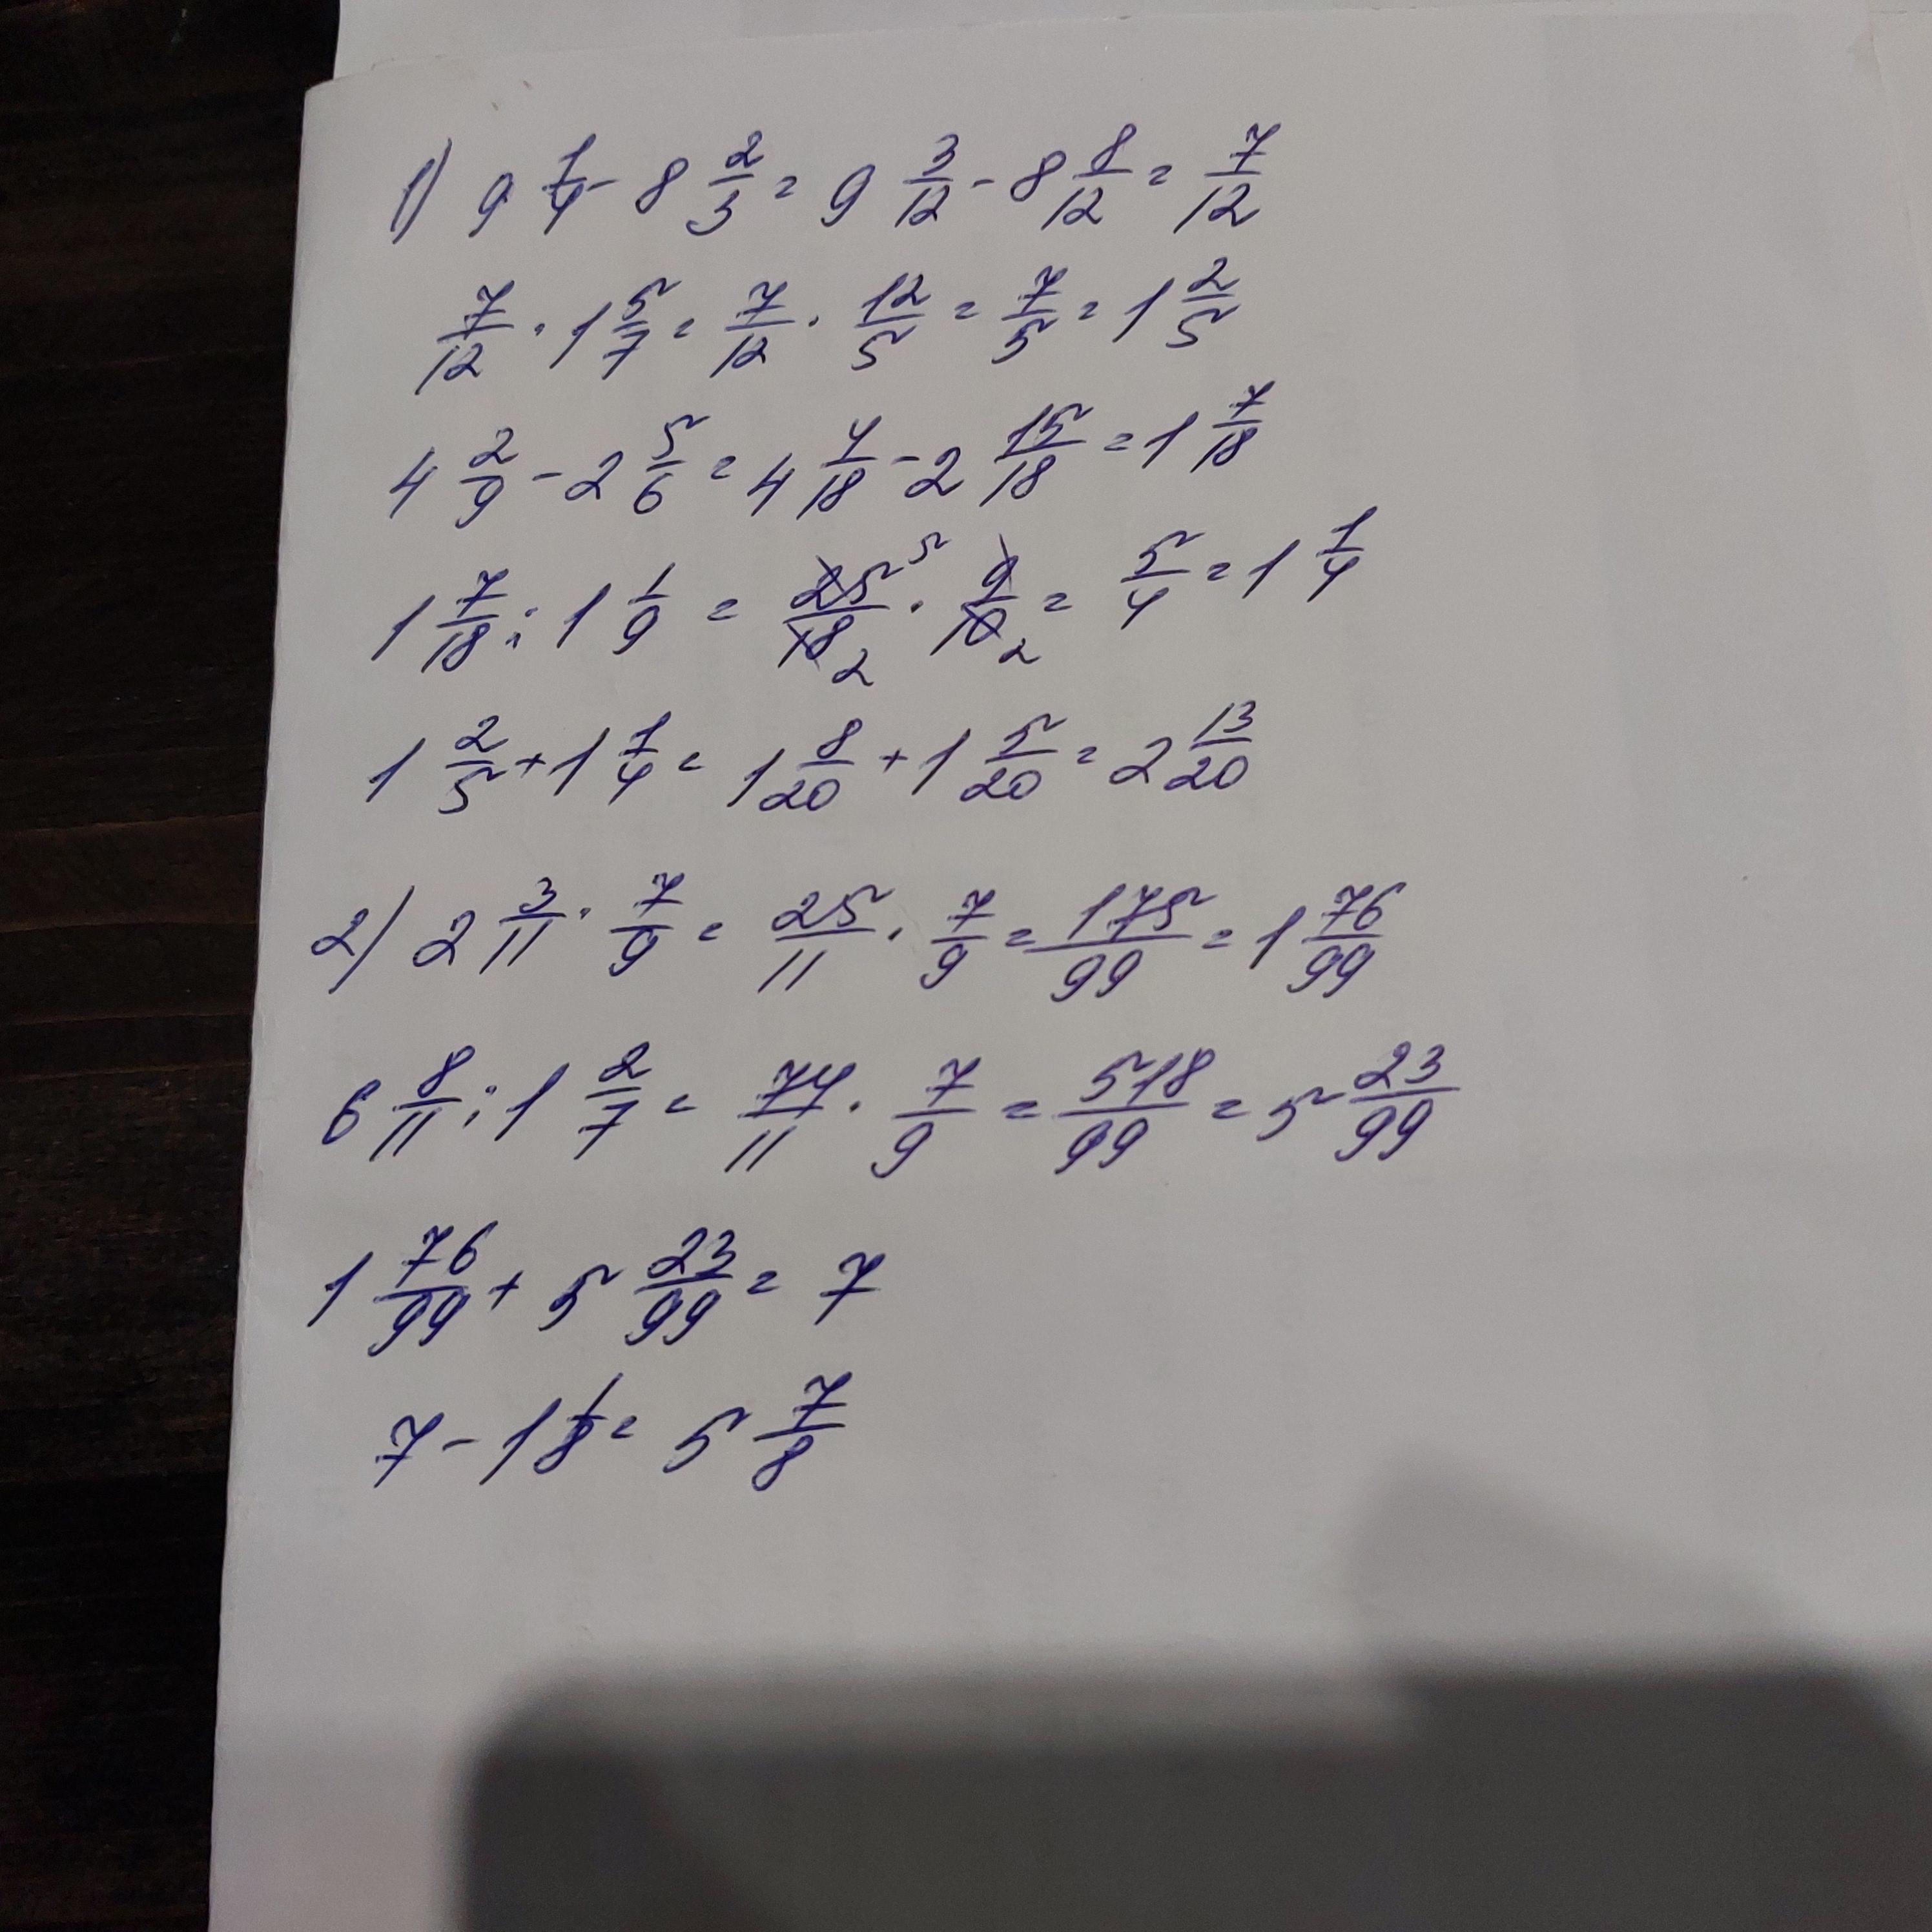 1) 9 1/4 - 8 2/3 = 9 3/12 - 8 8/12 = 7/12
7/12 · 1 5/7 = 7/12 · 12/5 = 7/5 = 1 2/5
4 2/9 - 2 5/6 = 4 4/18 - 2 15/18 = 1 7/18
1 7/18 : 1 1/9 = 25 5/18 2 · 9/10 2 = 5/4 = 1 1/4
1 2/5 + 1 1/4 = 1 8/20 + 1 5/20 = 2 13/20
2) 2 3/11 · 7/9 = 25/11 · 7/9 = 175/99 = 1 76/99
6 8/11 : 1 2/7 = 74/11 · 7/9 = 518/99 = 5 23/99
1 76/99 + 5 23/99 = 7
7 - 1 1/8 = 5 7/8